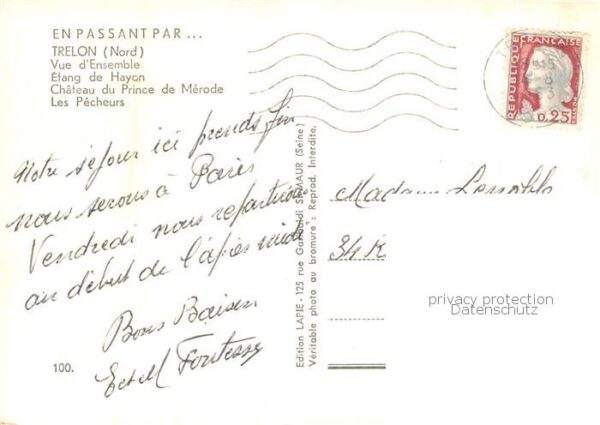 EN PASSANT PAR ...
TRELON (Nord)
Vue d'Ensemble
Étang de Hayon
Château du Prince de Mérode
Les Pêcheurs
RÉPUBLIQUE FRANÇAISE
0,25
Notre séjour ici prends fin
nous serons à Paris
Vendredi nous repartirons
au début de l'après midi
Bons Baisers
100.
Edition LAPIE - 125 rue Garibaldi St-MAUR (Seine)
Véritable photo au bromure : Reprod. Interdite.
Madame
34
privacy protection
Datenschutz